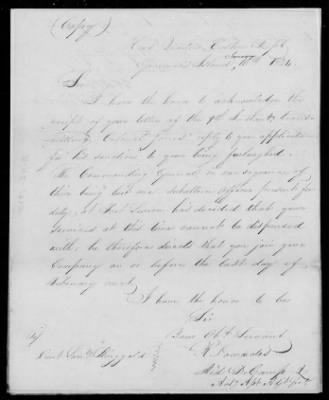 (Copy)
Head Quarters Eastern Dept
Governor's Island, 16th 1824.
Sir
I have the honor to acknowledge the
receipt of your letter of the 9th Inst. trans
mitting Colonel reply to your application
for his sanction to your being furloughed.
The Commanding General, in consequence of
their being but one subaltern officer present for
duty, at Fort has decided that your
services at this time cannot be dispensed
with; he therefore directs that you join your
Company on or before the last day of
February next.
I have the honor to be
Sir
Your Obt. Servant
R. Lowndes
Aid D. Camp &
Lieut Ringgold